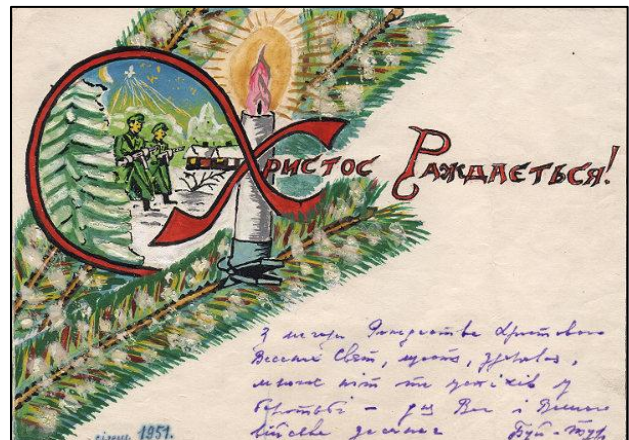 Христос Раждається!
З нагоди Рождества Христового
Веселих Свят, щастя, здоровля,
много літ та успіхів у
боротьбі – для Вас і Вашого
січень 1951.